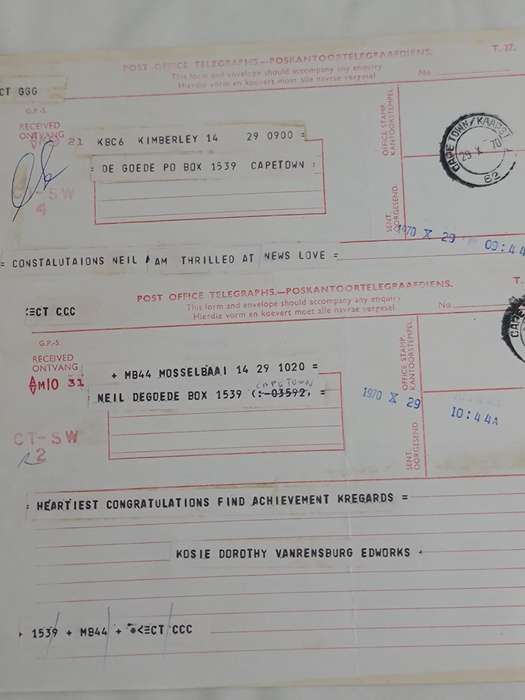 POST OFFICE TELEGRAPHS.—POSKANTOORTELEGRAAFDIENS. T. 27.
This form and envelope should accompany any enquiry
Hierdie vorm en koevert moet alle navrae vergesel No.
CT GGG
G.P.-S.
RECEIVED
ONTVANG
21 KBC6 KIMBERLEY 14 29 0900 =
= DE GOEDE PO BOX 1539 CAPETOWN :
CT-SW
4
OFFICE STAMP.
KANTOORSTEMPEL.
CAPE TOWN/KAAPST
29 X 70
82
SENT.
OORGESEND.
1970 X 29 09:44
= CONSTALUTAIONS NEIL AM THRILLED AT NEWS LOVE =
POST OFFICE TELEGRAPHS.—POSKANTOORTELEGRAAFDIENS. T.
This form and envelope should accompany any enquiry
Hierdie vorm en koevert moet alle navrae vergesel No.
<ΞCT CCC
G.P.-S.
RECEIVED
ONTVANG
AM10 31
+ MB44 MOSSELBAAI 14 29 1020 =
CAPETOWN
NEIL DEGOEDE BOX 1539 (:-03592, =
CT-SW
2
OFFICE STAMP.
KANTOORSTEMPEL.
CAPE
SENT.
OORGESEND.
1970 X 29 10:44A
: HEARTIEST CONGRATULATIONS FIND ACHIEVEMENT KREGARDS =
KOSIE DOROTHY VANRENSBURG EDWORKS +
+ 1539 + MB44 + *<ΞCT CCC